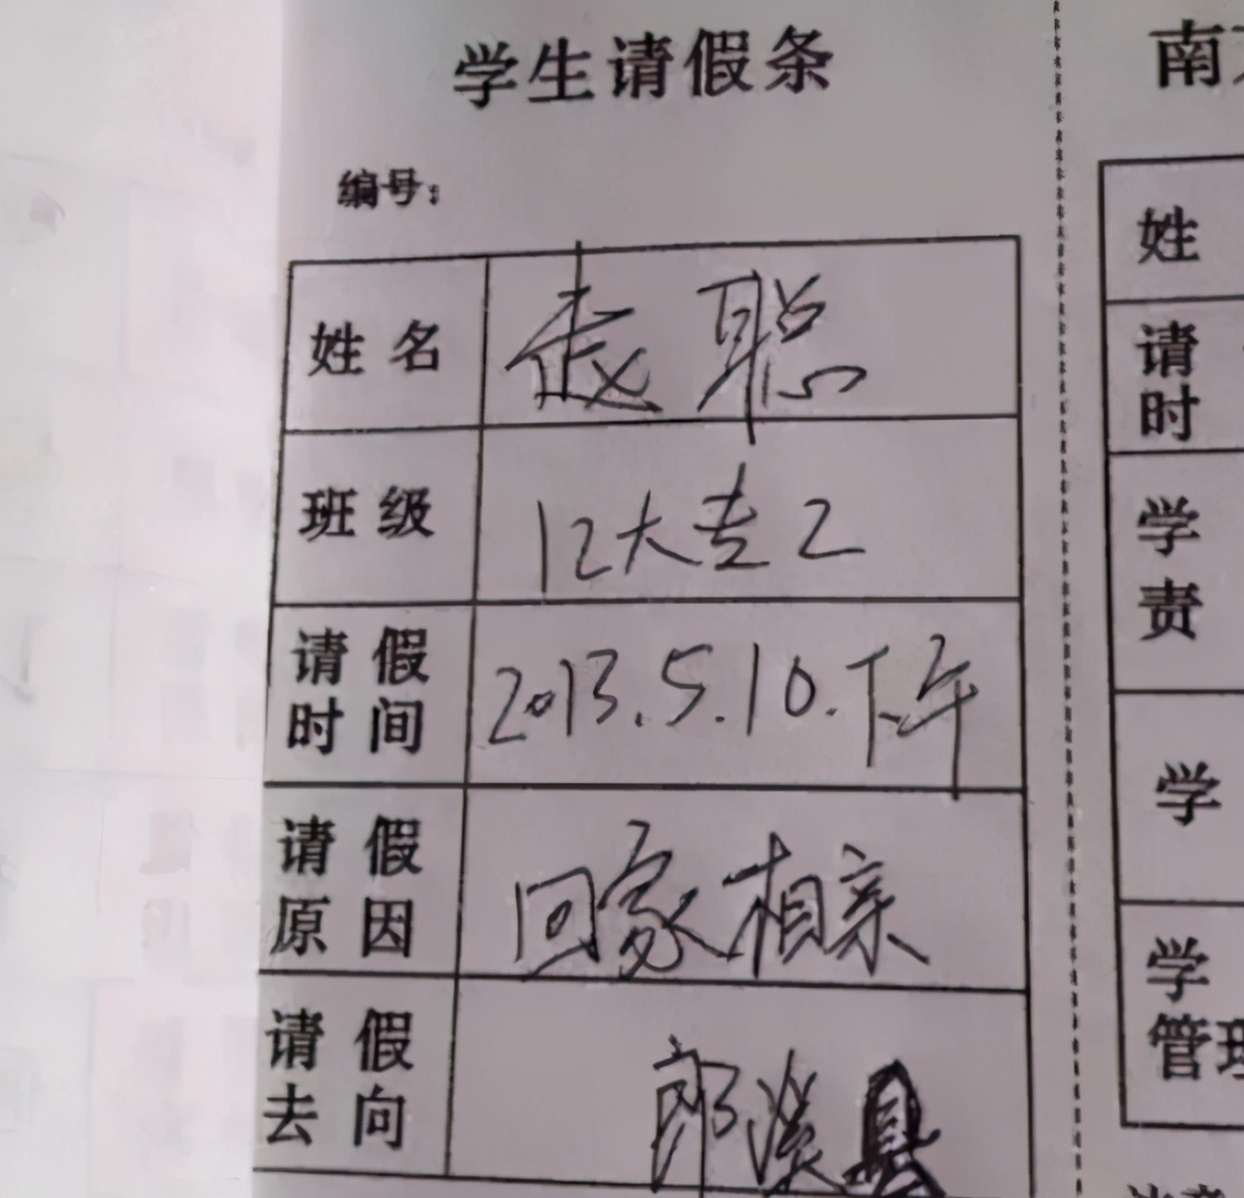 学生请假条
编号:
姓名 赵聪
班级 12大专2
请假时间 2013.5.10.下午
请假原因 回家相亲
请假去向 郎溪县
南
姓
请
时
学
责
学
学
管理